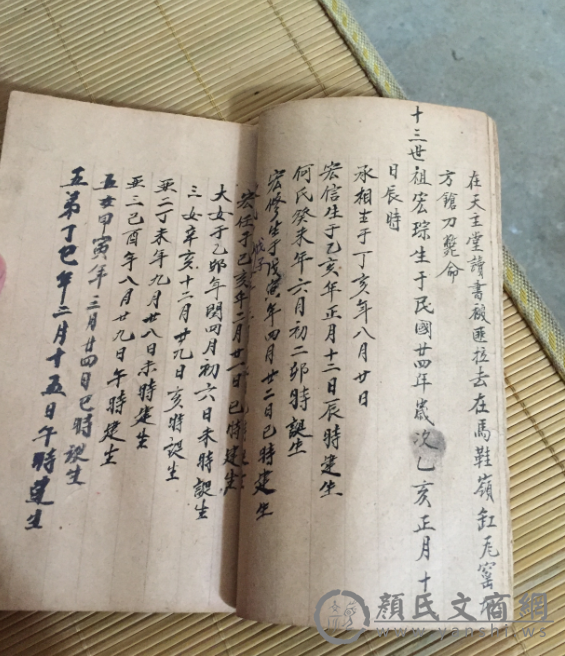 在天主堂讀書被匪拉去在馬鞍嶺缸瓦窑
方鎗刀斃命
十三世祖宏琮生于民國廿四年歲次乙亥正月十
日辰時
承相生于丁亥年八月廿日
宏信生于乙亥年正月十二日辰時建生
何氏癸未年六月初二卯時誕生
宏修生于戊寅年四月廿二日巳時建生
宏任于己亥年二月廿一日巳時建生
大女于乙卯年閏四月初六日未時誕生
三女辛亥十二月廿九日亥時誕生
二丁未年九月廿八日未時建生
三己酉年八月廿九日午時建生
五女甲寅年三月廿四日巳時誕生
五弟丁巳年二月十五日午時建生
顏氏文商網
www.yanshi.ws